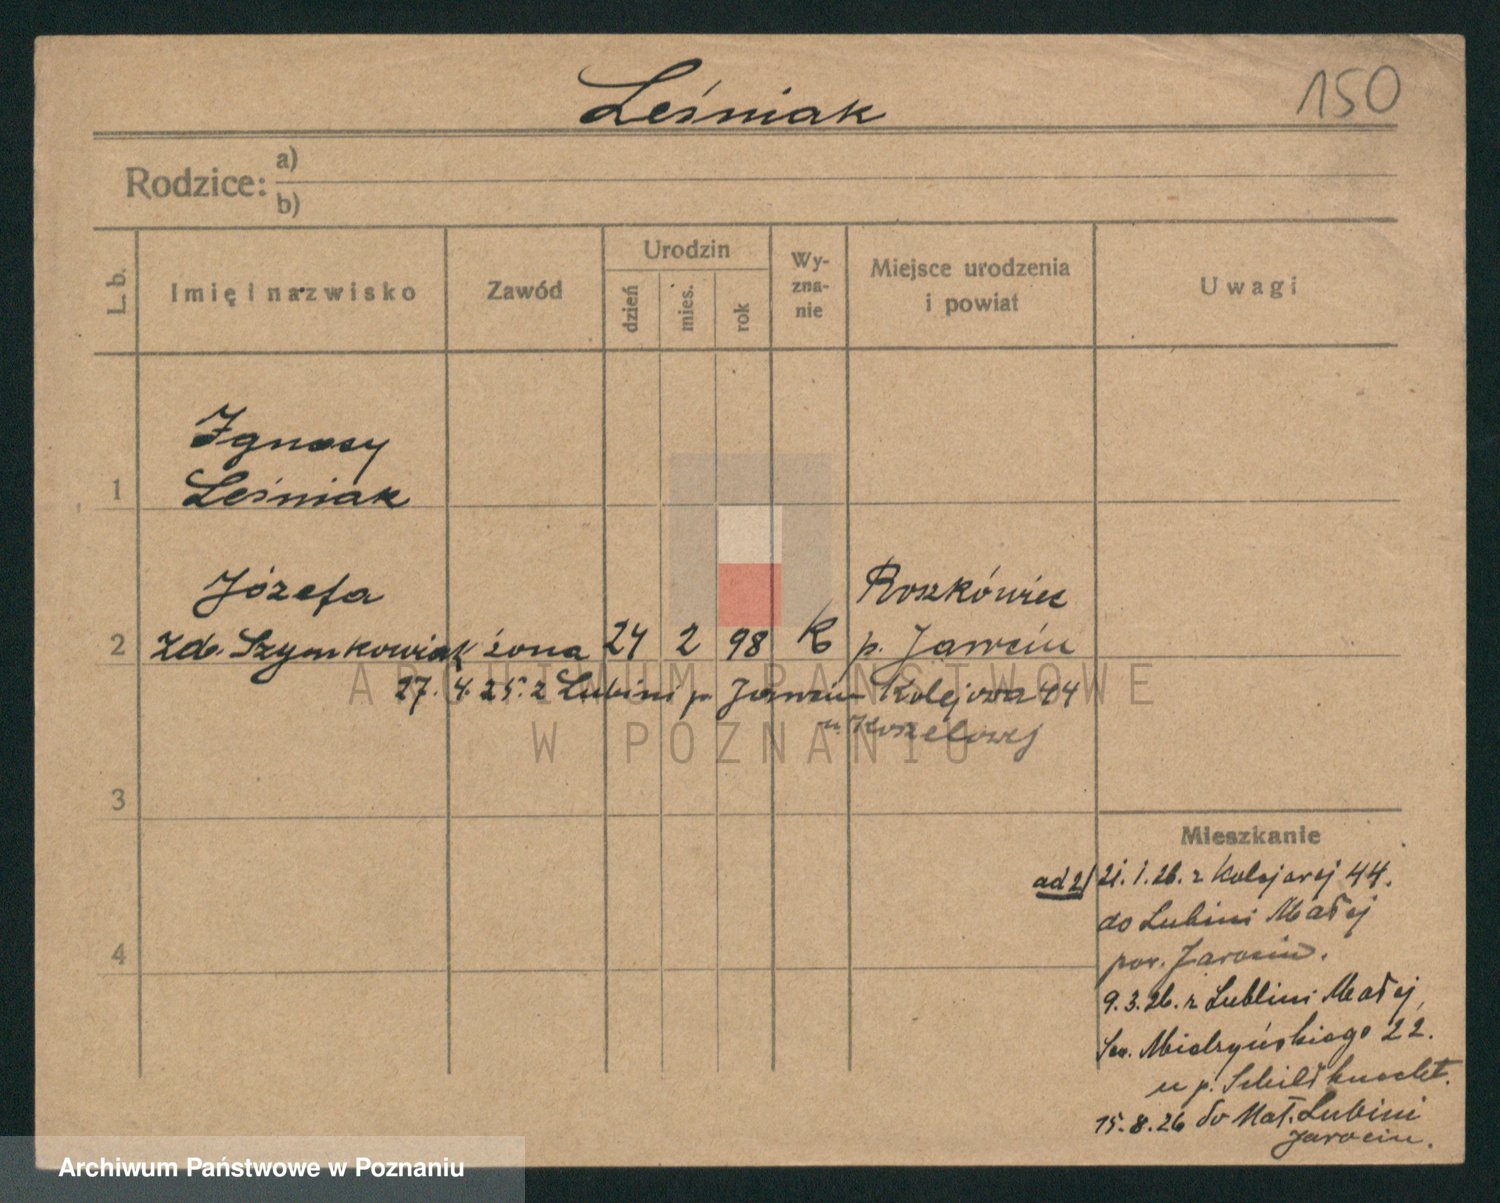 Leśniak
150
Rodzice:
a)
b)
L. b.
Imię i nazwisko
Zawód
Urodzin
dzień
mies.
rok
Wy-
zna-
nie
Miejsce urodzenia
i powiat
Uwagi
Ignacy
1 Leśniak
Józefa Roszkówiec
2 zd. Szymkowiak żona 24 2 98 K p. Jarocin
27. 4. 25. z Lubini p. Jarocin Kolejowa 44
u Koszelowej
3
Mieszkanie
ad 2/ 21. 1. 26. z Kolejowej 44.
do Lubini Małej
4 pow. Jarocin.
9. 3. 26. z Lubini Małej,
22.
u p.
15. 8. 26 do Mał. Lubini
Jarocin.
ARCHIWUM PAŃSTWOWE
W POZNANIU
Archiwum Państwowe w Poznaniu